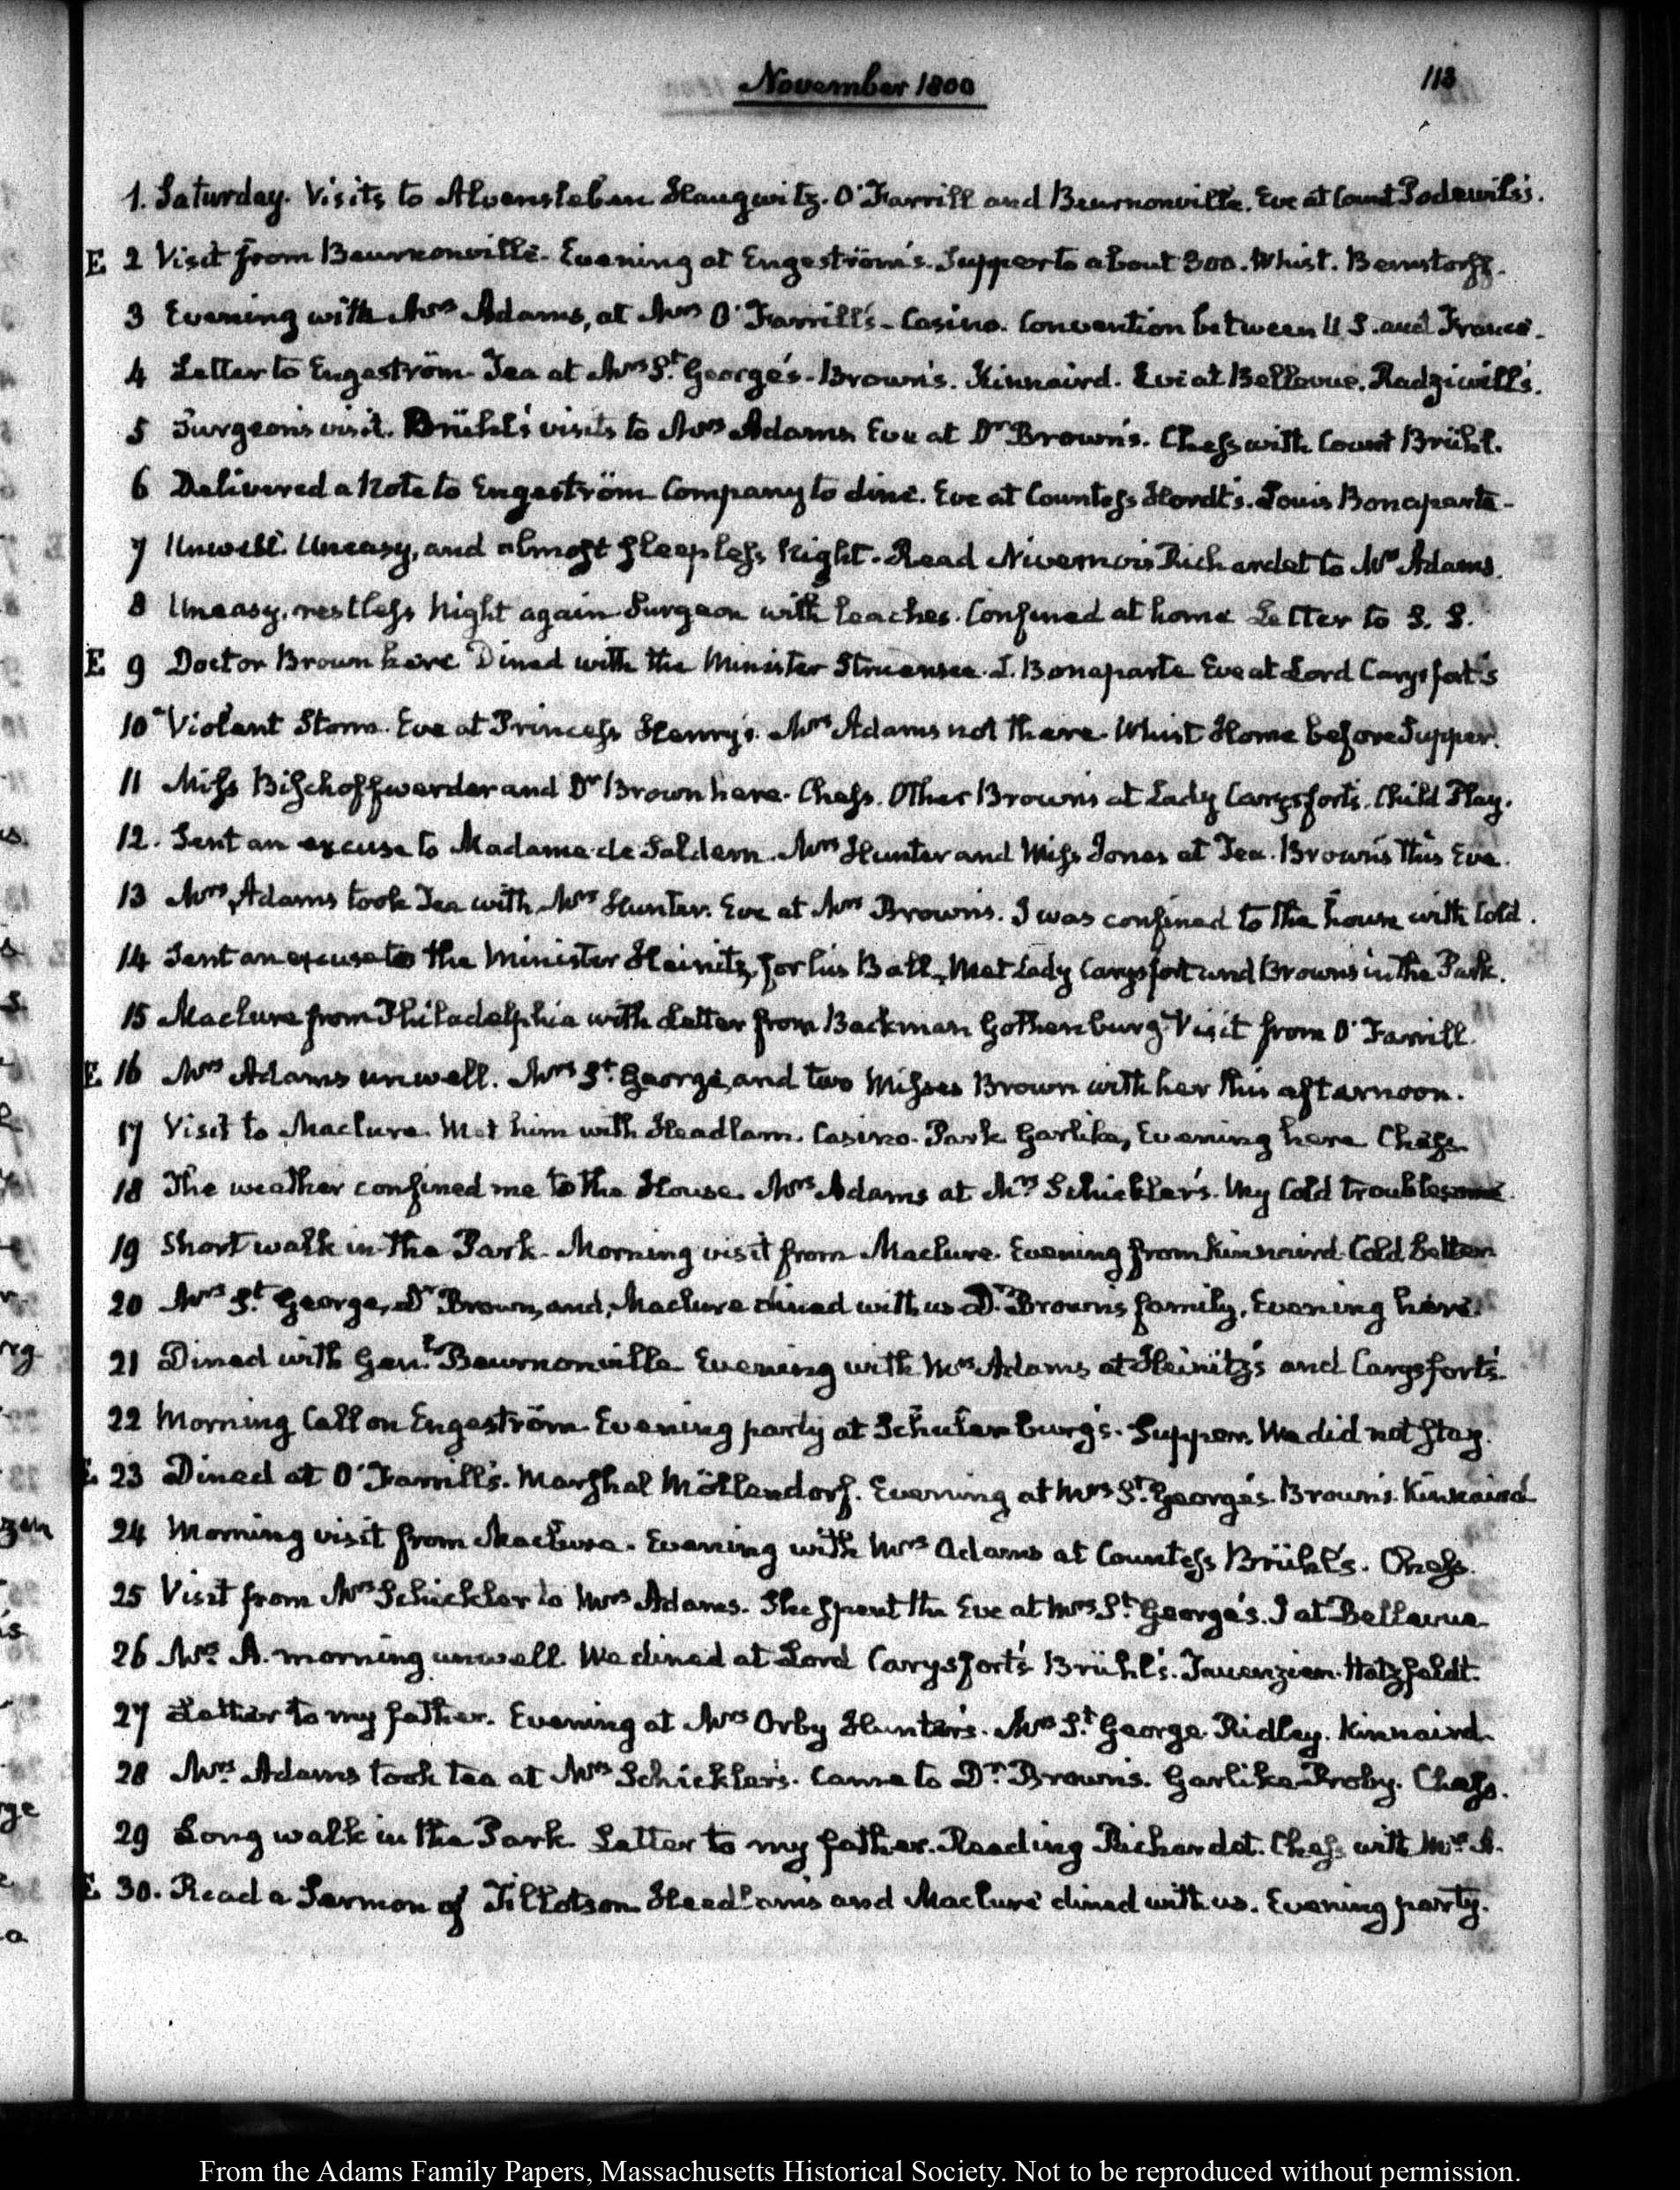 November 1800
113
1. Saturday. Visits to Alvensleben Haugwitz. O'Farrill and Beurnonville. Eve at Count Podewils's.
E 2 Visit from Beurnonville. Evening at Engeström's. Supper to about 300. Whist. Bernstorff.
3 Evening with Mrs Adams, at Mrs O'Farrill's. Casino. Convention between U S. and France.
4 Letter to Engeström. Tea at Mrs St. George's. Brown's. Kinnaird. Eve at Bellevue. Radziwill's.
5 Surgeons visit. Brühl's visits to Mrs Adams. Eve at Dr Brown's. Chess with Count Brühl.
6 Delivered a Note to Engeström Company to dine. Eve at Countess Hordt's. Louis Bonaparte.
7 Unwell. Uneasy, and almost sleepless Night. Read Nivernois Richardet to Mrs Adams.
8 Uneasy, restless Night again. Surgeon with leaches. Confined at home Letter to S. S.
E 9 Doctor Brown here Dined with the Minister Struensee. L. Bonaparte Eve at Lord Carysfort's
10 Violent Storm. Eve at Princess Henry's. Mrs Adams not there. Whist Home before Supper.
11 Miss Bischoffwerder and Dr Brown here. Chess. Other Browns at Lady Carysfort's. Child Play.
12. Sent an excuse to Madame de Saldern. Mrs Hunter and Miss Jones at Tea. Brown's this Eve.
13 Mrs Adams took Tea with Mrs Hunter. Eve at Mrs Brown's. I was confined to the house with Cold.
14 Sent an excuse to the Minister Heinitz, for his Ball. Met Lady Carysfort and Browns in the Park.
15 Maclure from Philadelphia with Letter from Backman Gothenburg. Visit from O'Farrill.
E 16 Mrs Adams unwell. Mrs St. George, and two Misses Brown with her this afternoon.
17 Visit to Maclure. Met him with Headlam. Casino. Park Garlike, Evening here Chess.
18 The weather confined me to the House. Mrs Adams at Mrs Schickler's. My Cold troublesome.
19 Short walk in the Park. Morning visit from Maclure. Evening from Kinnaird. Cold better
20 Mrs St. George, Dr Brown, and, Maclure dined with us. Dr. Brown's family, Evening here.
21 Dined with Genl. Beurnonville Evening with Mrs Adams at Heinitz's and Carysfort's.
22 Morning Call on Engeström. Evening party at Schulenburg's. Supper. We did not stay.
E 23 Dined at O'Farrill's. Marshal Möllendorf. Evening at Mrs St. George's. Brown's. Kinnaird
24 Morning visit from Maclure. Evening with Mrs Adams at Countess Brühl's. Chess.
25 Visit from Mrs Schickler to Mrs Adams. She spent the Eve at Mrs St. George's. I at Bellevue
26 Mrs. A. morning unwell. We dined at Lord Carysfort's Brühl's. Tauenzien. Hatzfeldt.
27 Letter to my father. Evening at Mrs Orby Hunter's. Mrs St. George. Ridley. Kinnaird.
28 Mrs. Adams took tea at Mrs Schickler's. Came to Dr. Brown's. Garlike Proby. Chess.
29 Long walk in the Park. Letter to my father. Reading Richardet. Chess with Mrs. A.
E 30. Read a Sermon of Tillotson. Headlam's and Maclure dined with us. Evening party.
From the Adams Family Papers, Massachusetts Historical Society. Not to be reproduced without permission.